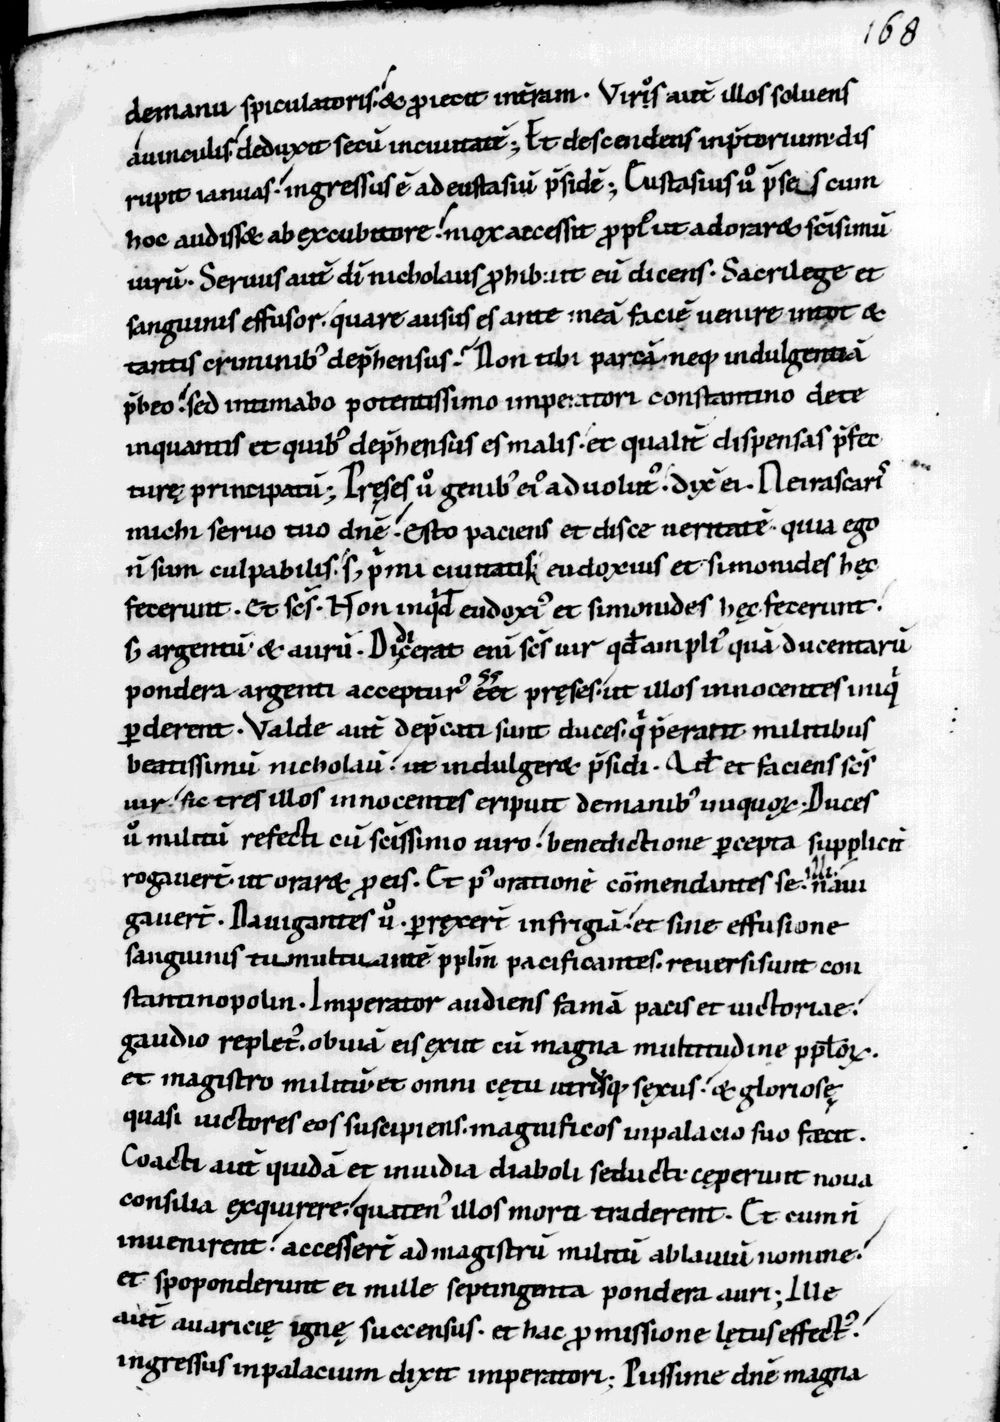 168
demanu spiculatoris. & ꝓiecit intr̄am. Viros aut̄ illos soluens
a uinculis deduxit secū inciuitatē; Et descendens inp̄torium dis
rupit ianuas. ingressus ē ad eustasiū p̄sidē; Eustasius ů p̄ses cum
hoc audiss& ab excubitore. mox accessit ꝓpius ut adorar& scīssimū
uirū. Seruus aut̄ dī nicholaus ꝓhibuit eū dicens. Sacrilege et
sanguinis effusor. quare ausus es ante meā faciē uenire in tot &
tantis criminib; dep̄hensus. Non tibi parcā neq; indulgentiā
p̄beo. sed intimabo potentissimo imperatori constantino dete
inquantis et quib; dep̄hensus es malis. et qualit̄ dispensas p̄fec
turę principatū; Pręses ů genib; eiꝰ aduolutꝰ. dix̄ ei. Ne irascaris
michi seruo tuo dnē. Esto paciens et disce ueritatē. quia ego
n̄ sum culpabilis. s; p̄mi ciuitatis eudoxius et simonides hęc
fecerunt. Et scs̄. Non inqd̄ eudoxiꝰ et simonides hęc fecerunt.
s; argentū & aurū. Didicerat enī scs̄ uir qd̄ ampliꝰ quā ducentarū
pondera argenti accepturꝰ eēt pręses. ut illos innocentes iniq
ꝑderent. Valde aut̄ dep̄cati sunt duces. q p̄erant militibus
beatissimū nicholaū. ut indulger& p̄sidi. Qd̄ et faciens scs̄
uir. sic tres illos innocentes eripuit demanib; iniquoꝝ. Duces
ů militū refecti cū scīssimo uiro. benedictione ꝑcepta supplicit̄
rogauer̄t. ut orar& ꝓ eis. Et pꝰ orationē cōmendantes se illi. naui
gauer̄t. Nauigantes ů. ꝑrexer̄t infrigiā. et sine effusione
sanguinis tumultuantē pplm̄ pacificantes. reuersi sunt con
stantinopolin. Imperator audiens famā pacis et uictoriae.
gaudio repletꝰ. obuiā eis exiit cū magna multitudine pploꝝ.
et magistro militū et omni cętu utriusq; sexus. & gloriosę
quasi uictores eos suscipiens. magnificos inpalacio suo fecit.
Coacti aut̄ quidā et inuidia diaboli seducti cęperunt noua
consilia exquirere. quatenꝰ illos morti traderent. Et cum n̄
inuenirent. accesser̄t ad magistrū militū ablauiū nomine.
et spoponderunt ei mille septingenta pondera auri; Ille
aut̄ auaricię ignę succensus. et hac ꝓmissione lętus effectꝰ.
ingressus inpalacium dixit imperatori; Piissime dnē magna